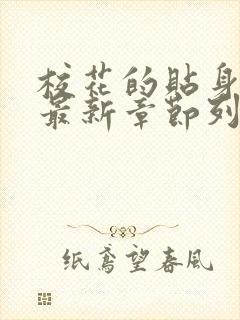 校花的贴身
最新章節列
纸鸢望春風